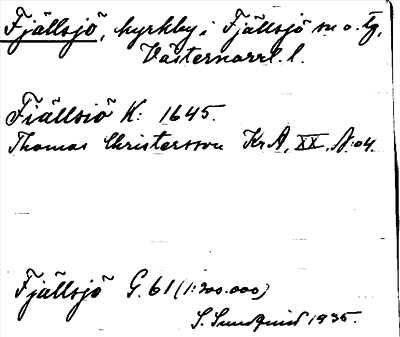 Fjällsjö, kyrkby i Fjällsjö sn o. tg,
Västernorrl. l.
Fiällsiö K: 1645.
Thomas Christersson KrA, XX, N:o4.
Fjällsjö G. 61 (1:200.000)
S. Sundquist 1935.